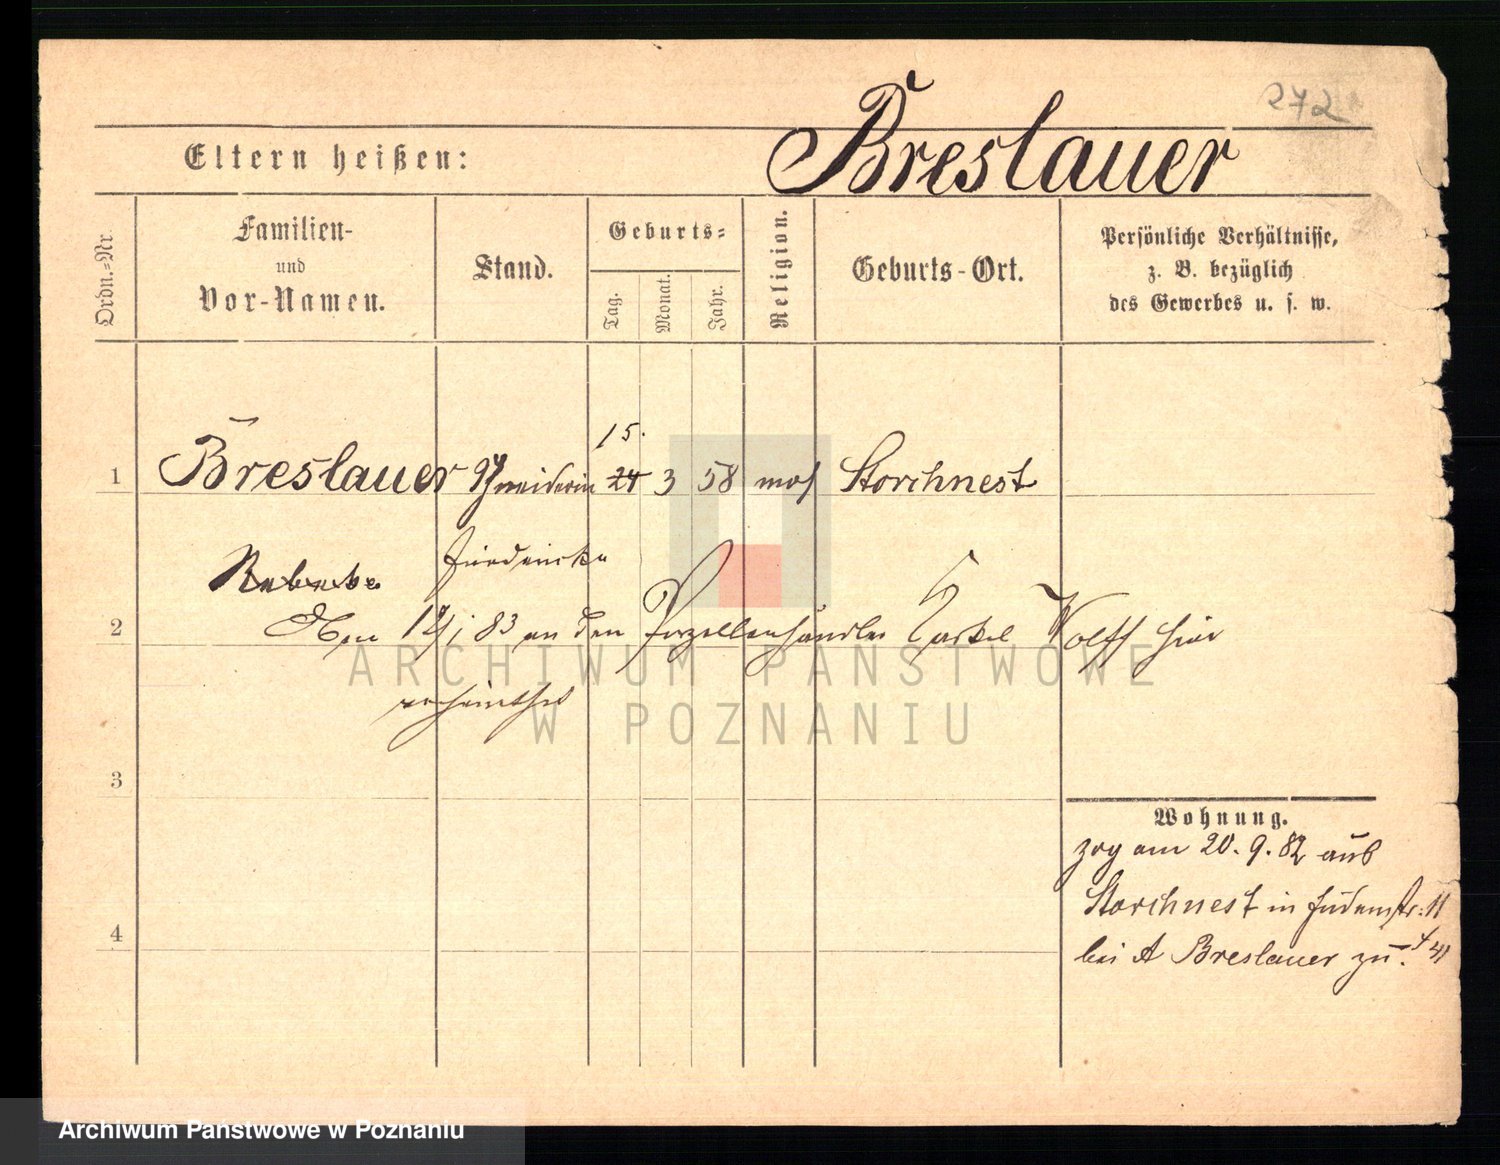 272
Breslauer
Eltern heißen:
Ordn.=Nr.
Familien-
und
Vor-Namen.
Stand.
Geburts=
Tag.
Monat.
Jahr.
Religion.
Geburts-Ort.
Persönliche Verhältnisse,
z. B. bezüglich
des Gewerbes u. s. w.
15.
1 Breslauer Schneiderin 24 3 58 mos Storchnest
Rebecka Friederike
2 83 an den Porzellanhändler Wolff hier
verheirathet
3
4
Wohnung.
zog am 20. 9. 82 aus
Storchnest in Judenstr. 11
bei A Breslauer zu.
ARCHIWUM PAŃSTWOWE
W POZNANIU
Archiwum Państwowe w Poznaniu